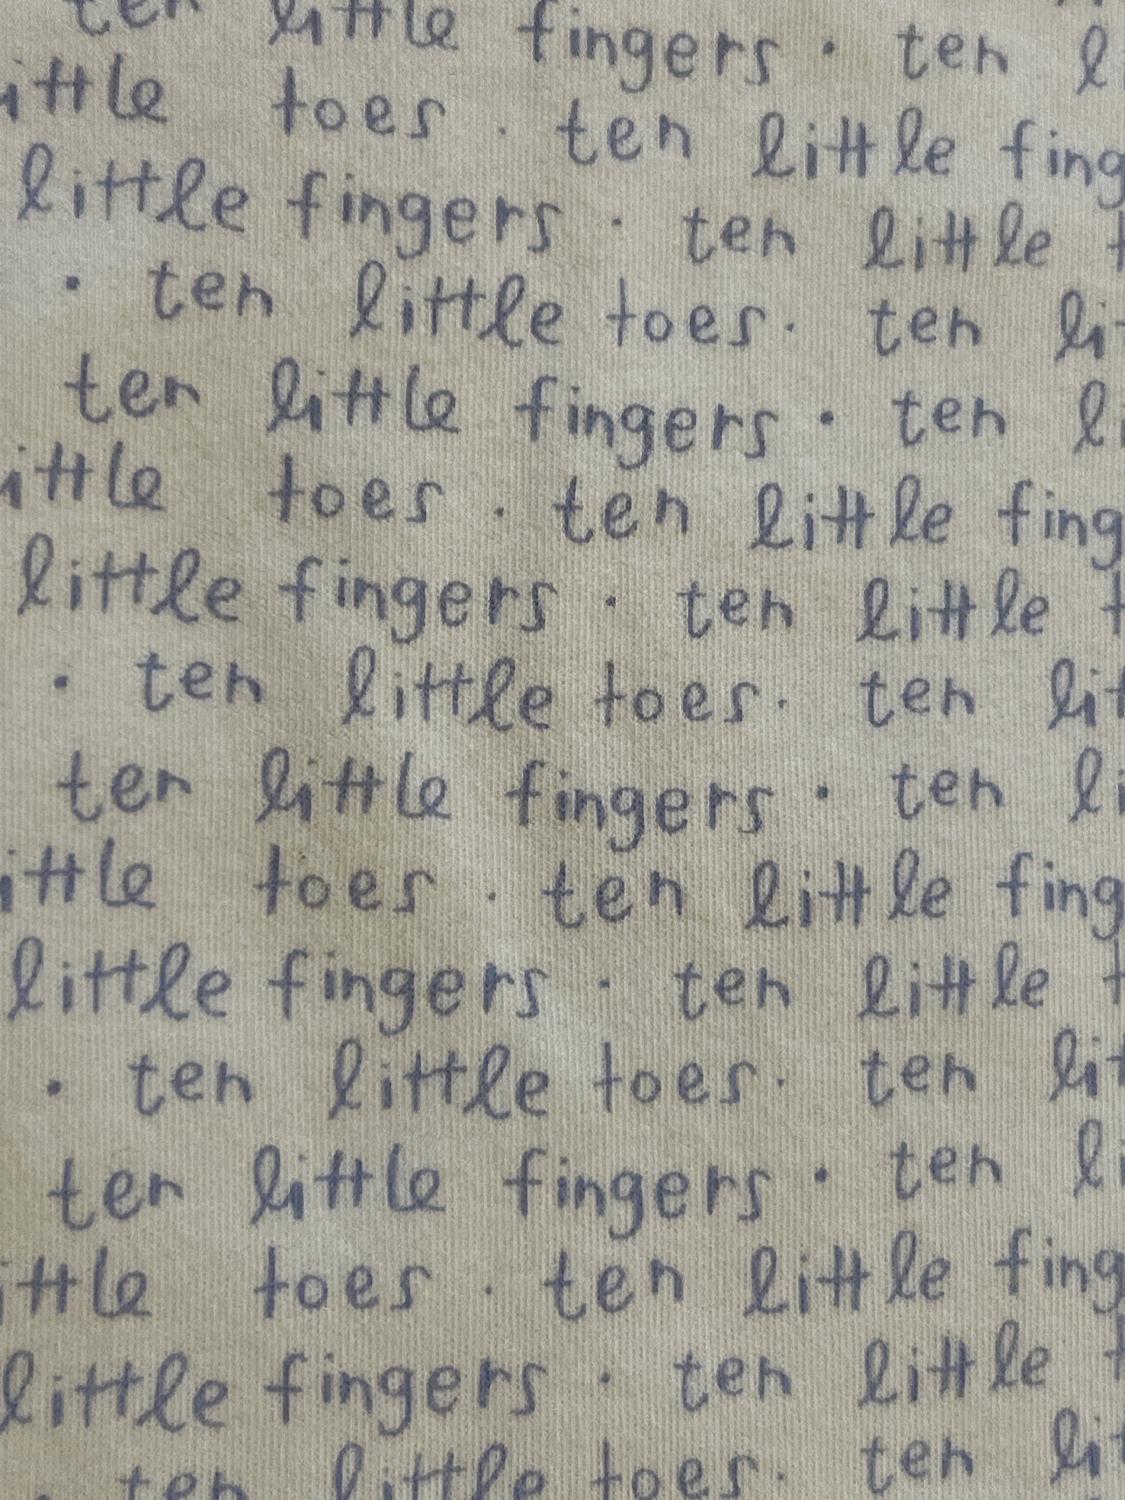 ten little fingers · ten
ittle toes · ten little fing
little fingers · ten little t
· ten little toes · ten lit
ten little fingers · ten li
ittle toes · ten little fing
little fingers · ten little t
· ten little toes · ten lit
ten little fingers · ten li
ittle toes · ten little fing
little fingers · ten little t
· ten little toes · ten lit
ten little fingers · ten li
ittle toes · ten little fing
little fingers · ten little t
· ten little toes · ten lit